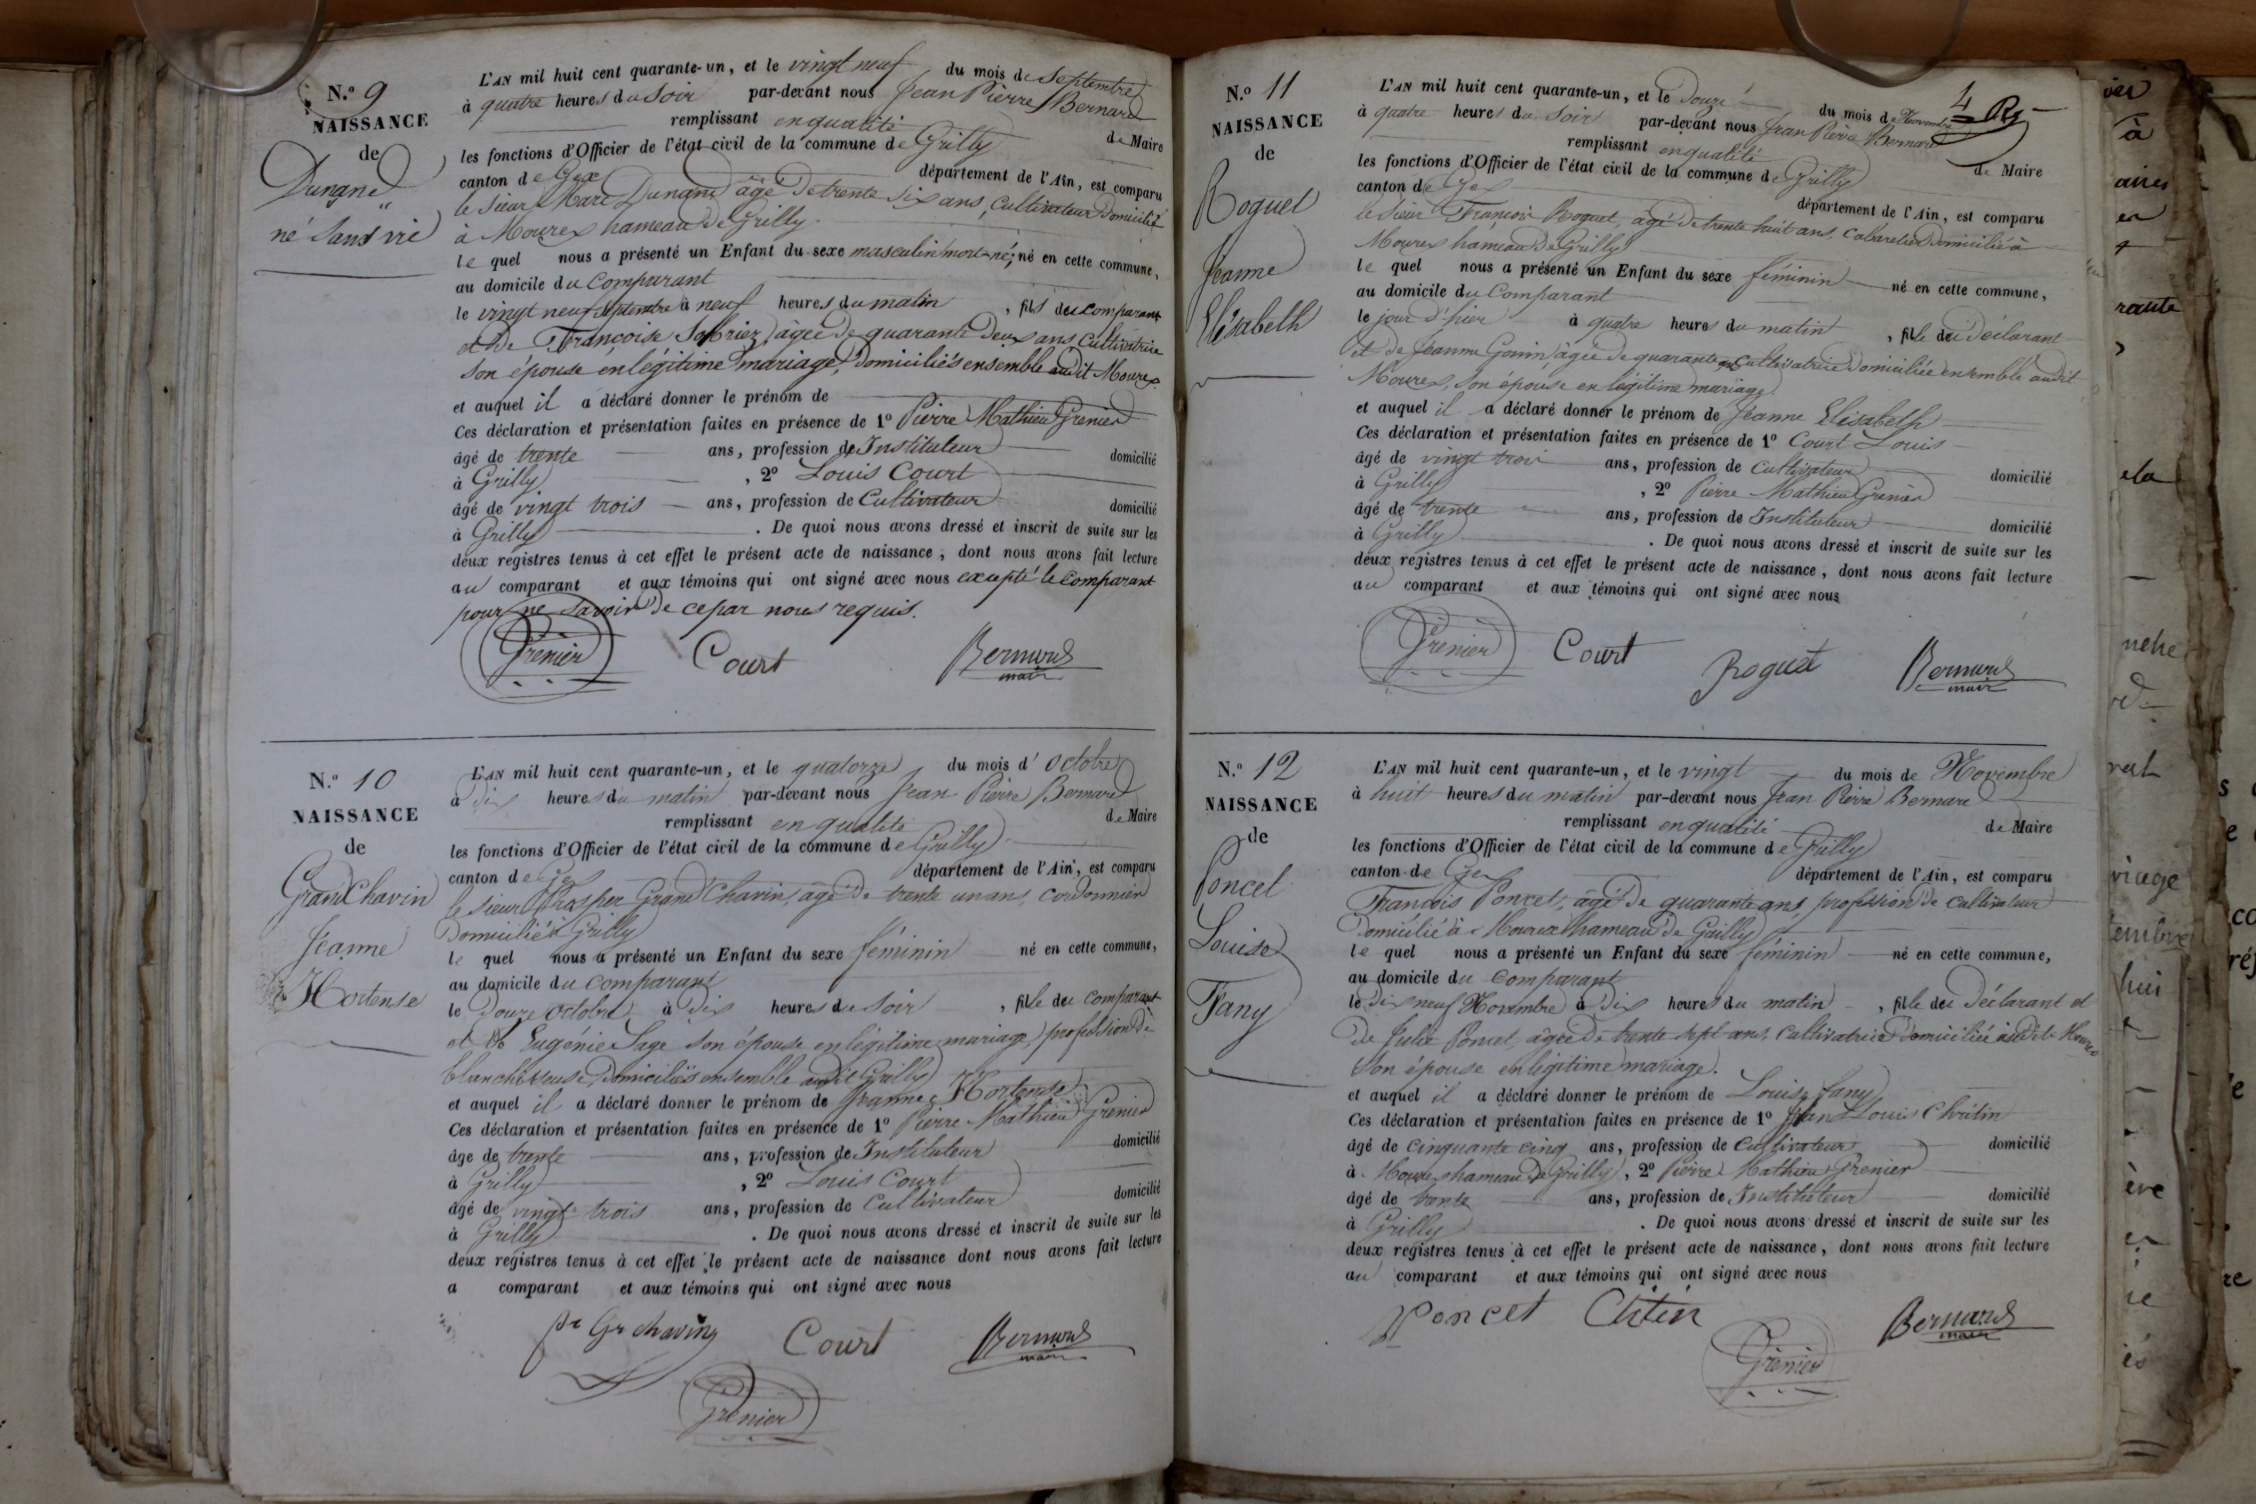 N.º 9
NAISSANCE
de
Dunand
né sans vie
L'AN mil huit cent quarante-un, et le vingt neuf du mois de Septembre
à quatre heures du Soir par-devant nous Jean Pierre Bernard
remplissant en qualité de Maire
les fonctions d'Officier de l'état civil de la commune de Grilly
canton de Gex département de l'Ain, est comparu
le sieur Marc Dunand âgé de trente six ans, cultivateur domicilié
à Mourex hameau de Grilly
le quel nous a présenté un Enfant du sexe masculin mort-né, né en cette commune,
au domicile du comparant
le vingt neuf septembre à neuf heures du matin, fils du comparant
et de Françoise âgée de quarante deux ans cultivatrice
son épouse en légitime mariage, domiciliés ensemble audit Mourex
et auquel il a déclaré donner le prénom de
Ces déclaration et présentation faites en présence de 1º Pierre Mathieu Grenier
âgé de trente ans, profession de Instituteur domicilié
à Grilly, 2º Louis Court
âgé de vingt trois ans, profession de Cultivateur domicilié
à Grilly. De quoi nous avons dressé et inscrit de suite sur les
deux registres tenus à cet effet le présent acte de naissance, dont nous avons fait lecture
au comparant et aux témoins qui ont signé avec nous excepté le comparant
pour ne savoir de ce par nous requis.
Grenier Court Bernard
maire
N.º 10
NAISSANCE
de
Grand Chavin
Jeanne
Hortense
L'AN mil huit cent quarante-un, et le quatorze du mois d'octobre
à dix heures du matin par-devant nous Jean Pierre Bernard
remplissant en qualité de Maire
les fonctions d'Officier de l'état civil de la commune de Grilly
canton de Gex département de l'Ain, est comparu
le sieur Prosper Grand Chavin, âgé de trente un ans, cordonnier
domicilié à Grilly
le quel nous a présenté un Enfant du sexe féminin né en cette commune,
au domicile du comparant
le douze octobre à dix heures du soir, fille du comparant
et de Eugénie Sage son épouse en légitime mariage, profession de
blanchisseuse domiciliés ensemble audit Grilly
et auquel il a déclaré donner le prénom de Jeanne Hortense
Ces déclaration et présentation faites en présence de 1º Pierre Mathieu Grenier
âge de trente ans, profession de Instituteur domicilié
à Grilly, 2º Louis Court
âgé de vingt trois ans, profession de Cultivateur domicilié
à Grilly. De quoi nous avons dressé et inscrit de suite sur les
deux registres tenus à cet effet le présent acte de naissance dont nous avons fait lecture
a comparant et aux témoins qui ont signé avec nous
pr Gr chavin Court Bernard
maire
Grenier
4
N.º 11
NAISSANCE
de
Roguet
Jeanne
Elisabeth
L'AN mil huit cent quarante-un, et le douze du mois de Novembre
à quatre heures du soir par-devant nous Jean Pierre Bernard
remplissant en qualité de Maire
les fonctions d'Officier de l'état civil de la commune de Grilly
canton de Gex département de l'Ain, est comparu
le sieur François Roguet, âgé de trente huit ans, cabaretier domicilié à
Mourex hameau de Grilly
le quel nous a présenté un Enfant du sexe féminin né en cette commune,
au domicile du Comparant
le jour d'hier à quatre heures du matin, fille du Déclarant
et de Jeanne Gonin, âgée de quarante cultivatrice domiciliée ensemble audit
Mourex, son épouse en légitime mariage
et auquel il a déclaré donner le prénom de Jeanne Elisabeth
Ces déclaration et présentation faites en présence de 1º Court Louis
âgé de vingt trois ans, profession de cultivateur domicilié
à Grilly, 2º Pierre Mathieu Grenier
âgé de trente ans, profession de Instituteur domicilié
à Grilly. De quoi nous avons dressé et inscrit de suite sur les
deux registres tenus à cet effet le présent acte de naissance, dont nous avons fait lecture
au comparant et aux témoins qui ont signé avec nous
Grenier Court Roguet Bernard
maire
N.º 12
NAISSANCE
de
Poncet
Louise
Fany
L'AN mil huit cent quarante-un, et le vingt du mois de Novembre
à huit heures du matin par-devant nous Jean Pierre Bernard
remplissant en qualité de Maire
les fonctions d'Officier de l'état civil de la commune de Grilly
canton de Gex département de l'Ain, est comparu
François Poncet, âgé de quarante ans, profession de cultivateur
domicilié à Mourex hameau de Grilly
le quel nous a présenté un Enfant du sexe féminin né en cette commune,
au domicile du comparant
le dix neuf Novembre à dix heures du matin, fille du Déclarant et
de Julie Poncet, âgée de trente sept ans, cultivatrice domiciliée audit Mourex
son épouse en légitime mariage.
et auquel il a déclaré donner le prénom de Louise Fany
Ces déclaration et présentation faites en présence de 1º Jean Louis Chrétin
âgé de cinquante cinq ans, profession de Cultivateur domicilié
à Mourex hameau de Grilly, 2º Pierre Mathieu Grenier
âgé de trente ans, profession de Instituteur domicilié
à Grilly. De quoi nous avons dressé et inscrit de suite sur les
deux registres tenus à cet effet le présent acte de naissance, dont nous avons fait lecture
au comparant et aux témoins qui ont signé avec nous
Poncet Crétin Bernard
maire
Grenier